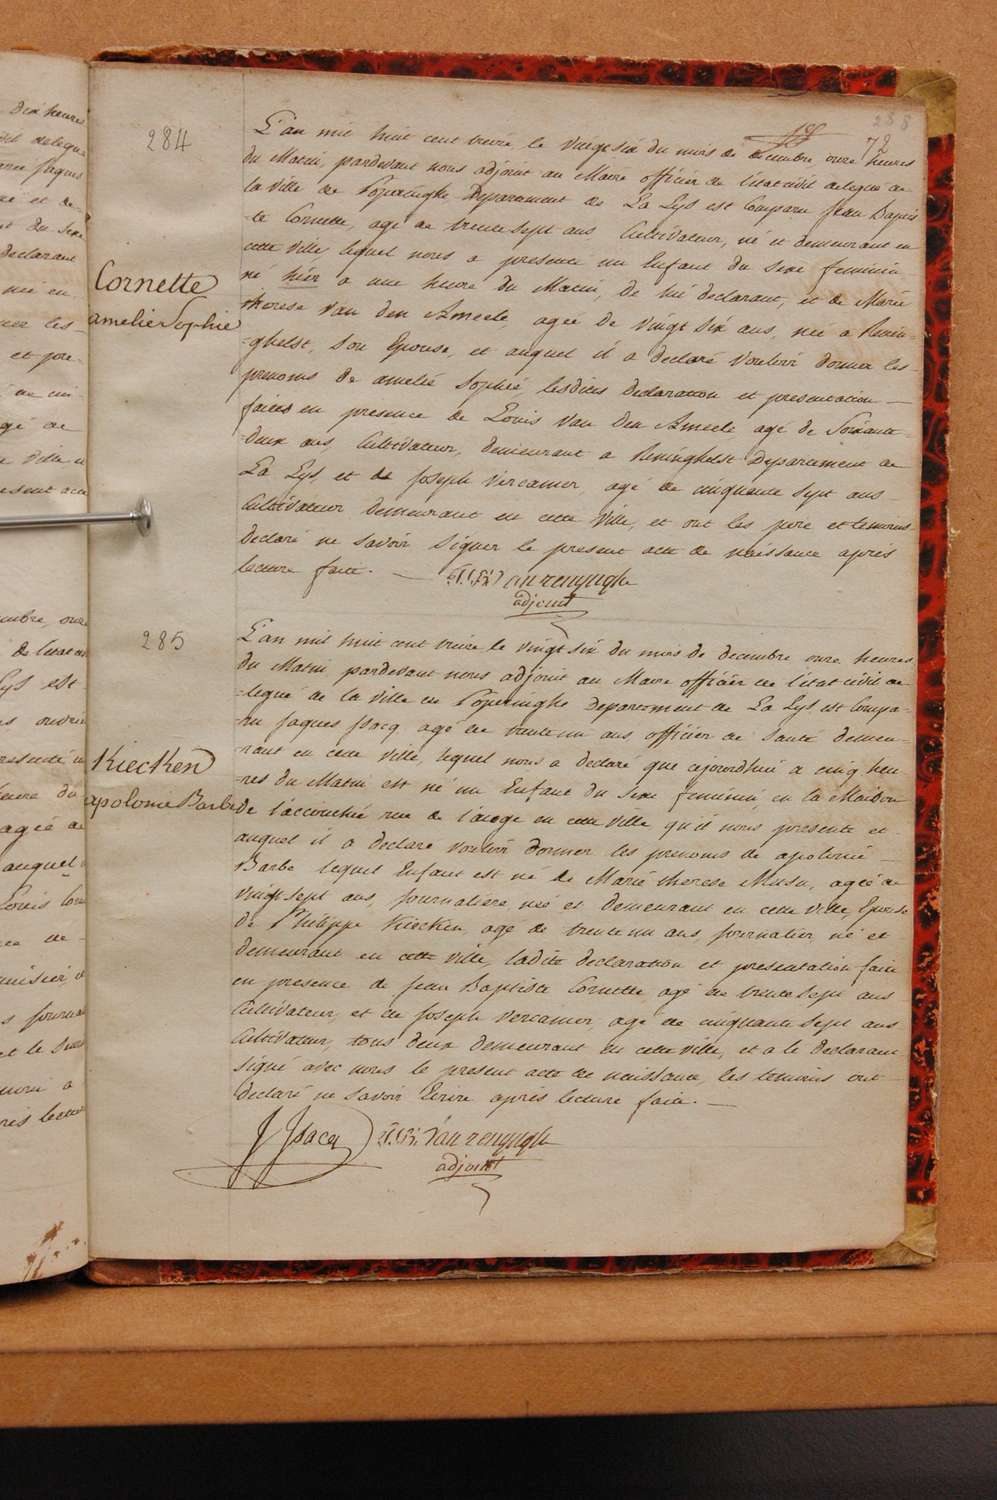 288
72
284
L'an mil huit cent treize, le vingt six du mois de decembre onze heures
du Matin, pardevant nous adjoint au Maire officier de l'etat civil delegué de
la ville de Poperinghe Departement de La Lys est Comparu Jean Baptis
-te Cornette, agé de trente sept ans Cultivateur, né et demeurant en
cette ville, lequel nous a presenté un Enfant du sexe feminin
né hier a une heure du Matin, de lui declarant, et de Marie
Cornette
amelie Sophie
therese Van den Ameele agée de vingt six ans, née a Renin-
-ghelst, son Epouse, et auquel il a declaré vouloir donner les
prenoms de amelie Sophie, lesdites declaration et presentation
faites en presence de Louis Van den Ameele agé de Soixante
deux ans, Cultivateur, demeurant a Reninghelst Departement de
La Lys, et de Joseph Vercamer, agé de cinquante sept ans
Cultivateur demeurant en cette ville, et ont les pere et temoins
declaré ne savoir signer le present acte de naissance après
lecture faite.
Van renynghe
adjoint
285
L'an mil huit cent treize le vingt six du mois de decembre onze heures
du Matin pardevant nous adjoint au Maire officier de l'etat civil de
-legué de la ville de Poperinghe departement de La Lys est Compa-
-ru Jaques Isacq agé de trente un ans officier de Santé demeu-
-rant en cette ville, lequel nous a declaré que cejourdhui a cinq heu-
-res du Matin est né un Enfant du sexe feminin, en la Maison
Kiecken
apolonie Barbe
de l'accouchée rue de en cette ville qu'il nous presente et
auquel il a declaré vouloir donner les prenoms de apolonie
Barbe lequel Enfant est né de Marie therese Musu, agée de
vingt sept ans, journaliere, née et demeurant en cette ville, Epouse
de Philippe Kiecken, agé de trente un ans, journalier né et
demeurant en cette ville, ladite declaration et presentation faite
en presence de Jean Baptiste Cornette, agé de trente sept ans
Cultivateur, et de Joseph Vercamer, agé de cinquante sept ans
Cultivateur, tous deux demeurant en cette ville, et a le declarant
signé avec nous le present acte de naissance, les temoins ont
declaré ne savoir Ecrire après lecture faite.
J Isacq Van renynghe
adjoint